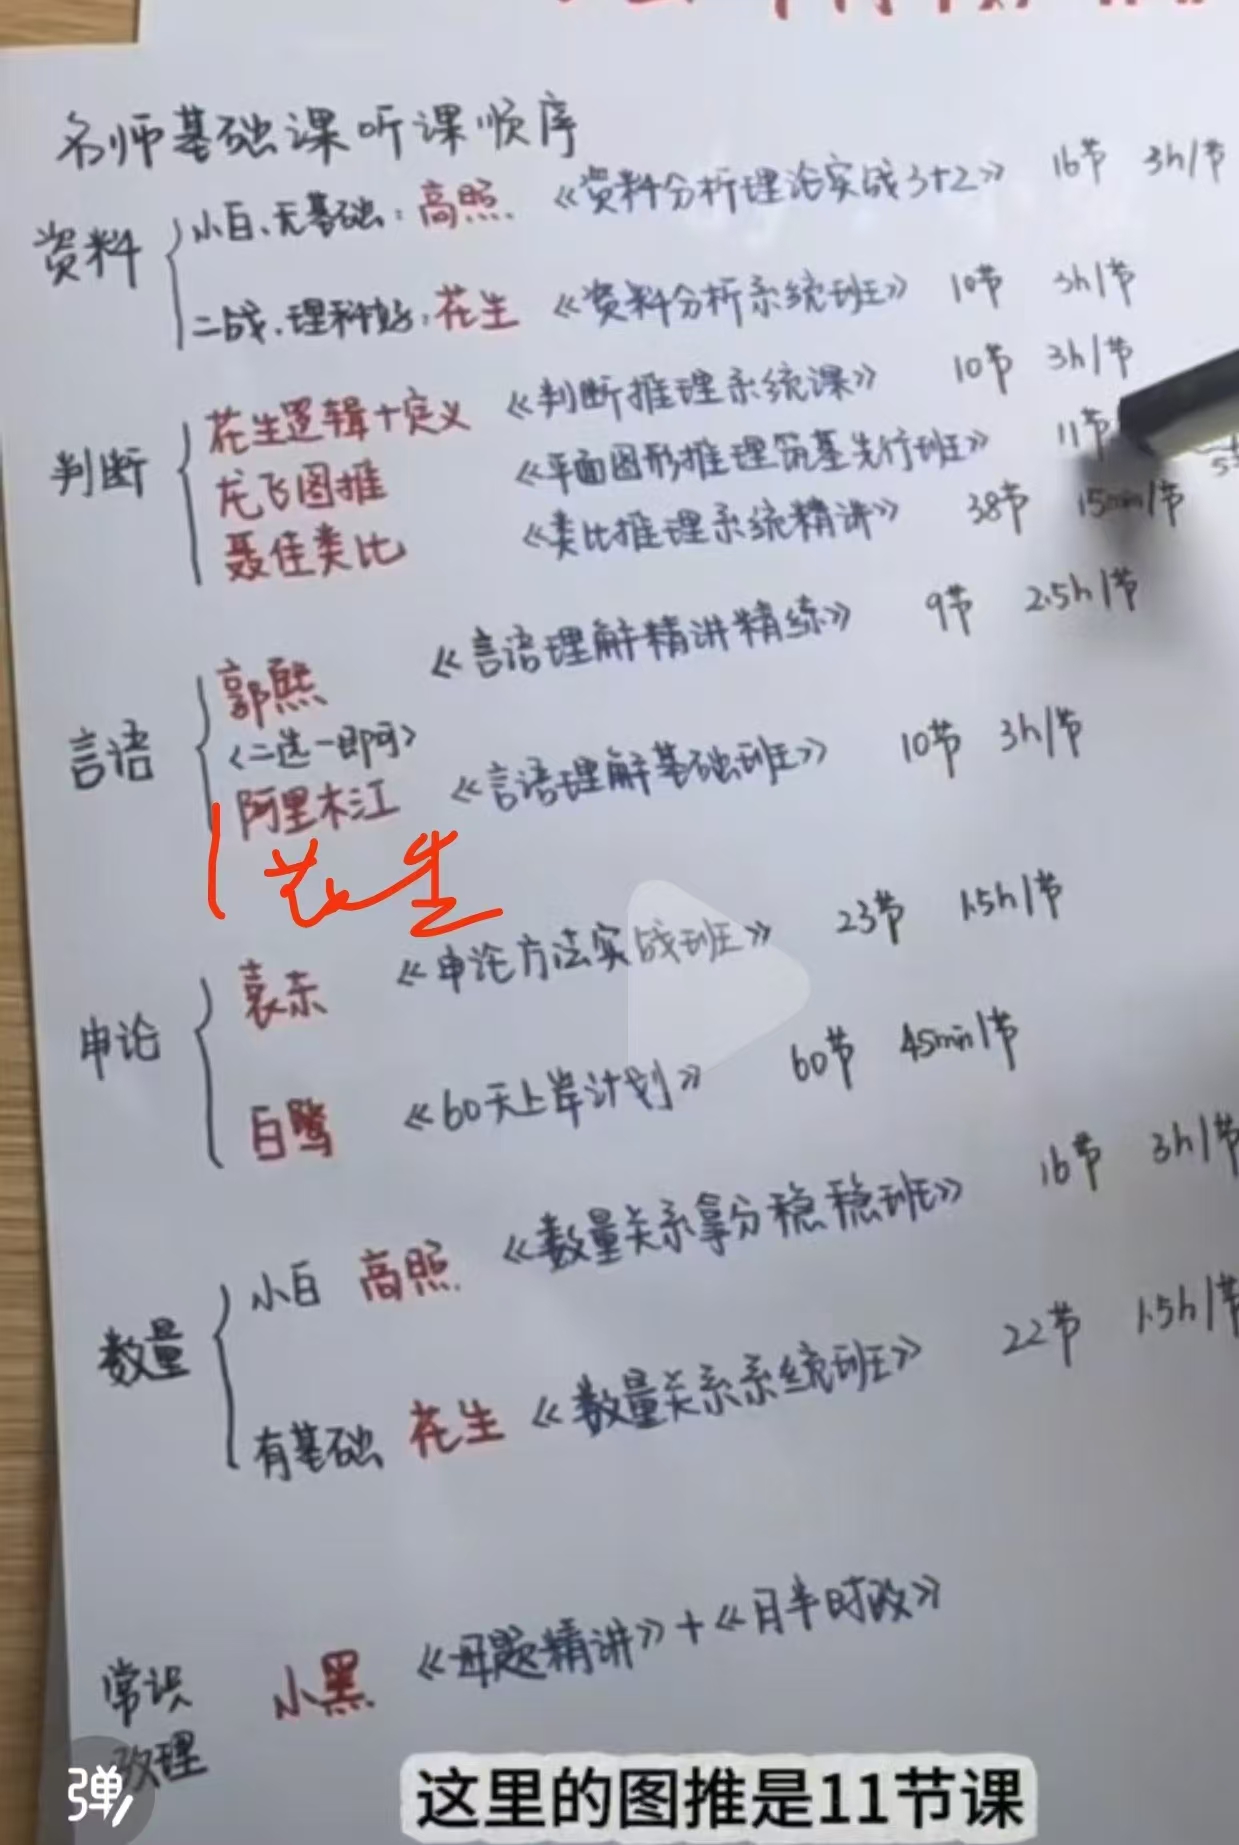 名师基础课听课顺序
资料
小白、无基础：高照 《资料分析理论实战3+2》 16节 3h/节
二战、理科好：花生 《资料分析系统班》 10节 3h/节
判断
花生逻辑+定义 《判断推理系统课》 10节 3h/节
龙飞图推 《平面图形推理筑基先行班》 11节
聂佳类比 《类比推理系统精讲》 38节 15min/节
言语
郭熙 《言语理解精讲精练》 9节 2.5h/节
<二选一即可>
阿里木江 《言语理解基础班》 10节 3h/节
花生
申论
袁东 《申论方法实战班》 23节 1.5h/节
白鹭 《60天上岸计划》 60节 45min/节
数量
小白 高照 《数量关系拿分稳稳班》 16节 3h/节
有基础 花生 《数量关系系统班》 22节 1.5h/节
常识
政理
小黑 《母题精讲》+《月半时政》
弹
这里的图推是11节课